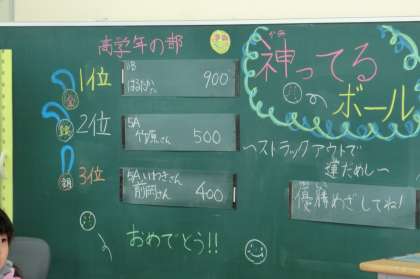 高学年の部
1位
金
はるたか
900
2位
銀
5A
竹原さん
500
3位
銅
5A いわきさん
前岡さん
400
おめでとう!!
神ってる
ボール
〜ストラックアウトで
運だめし〜
優勝めざしてね!